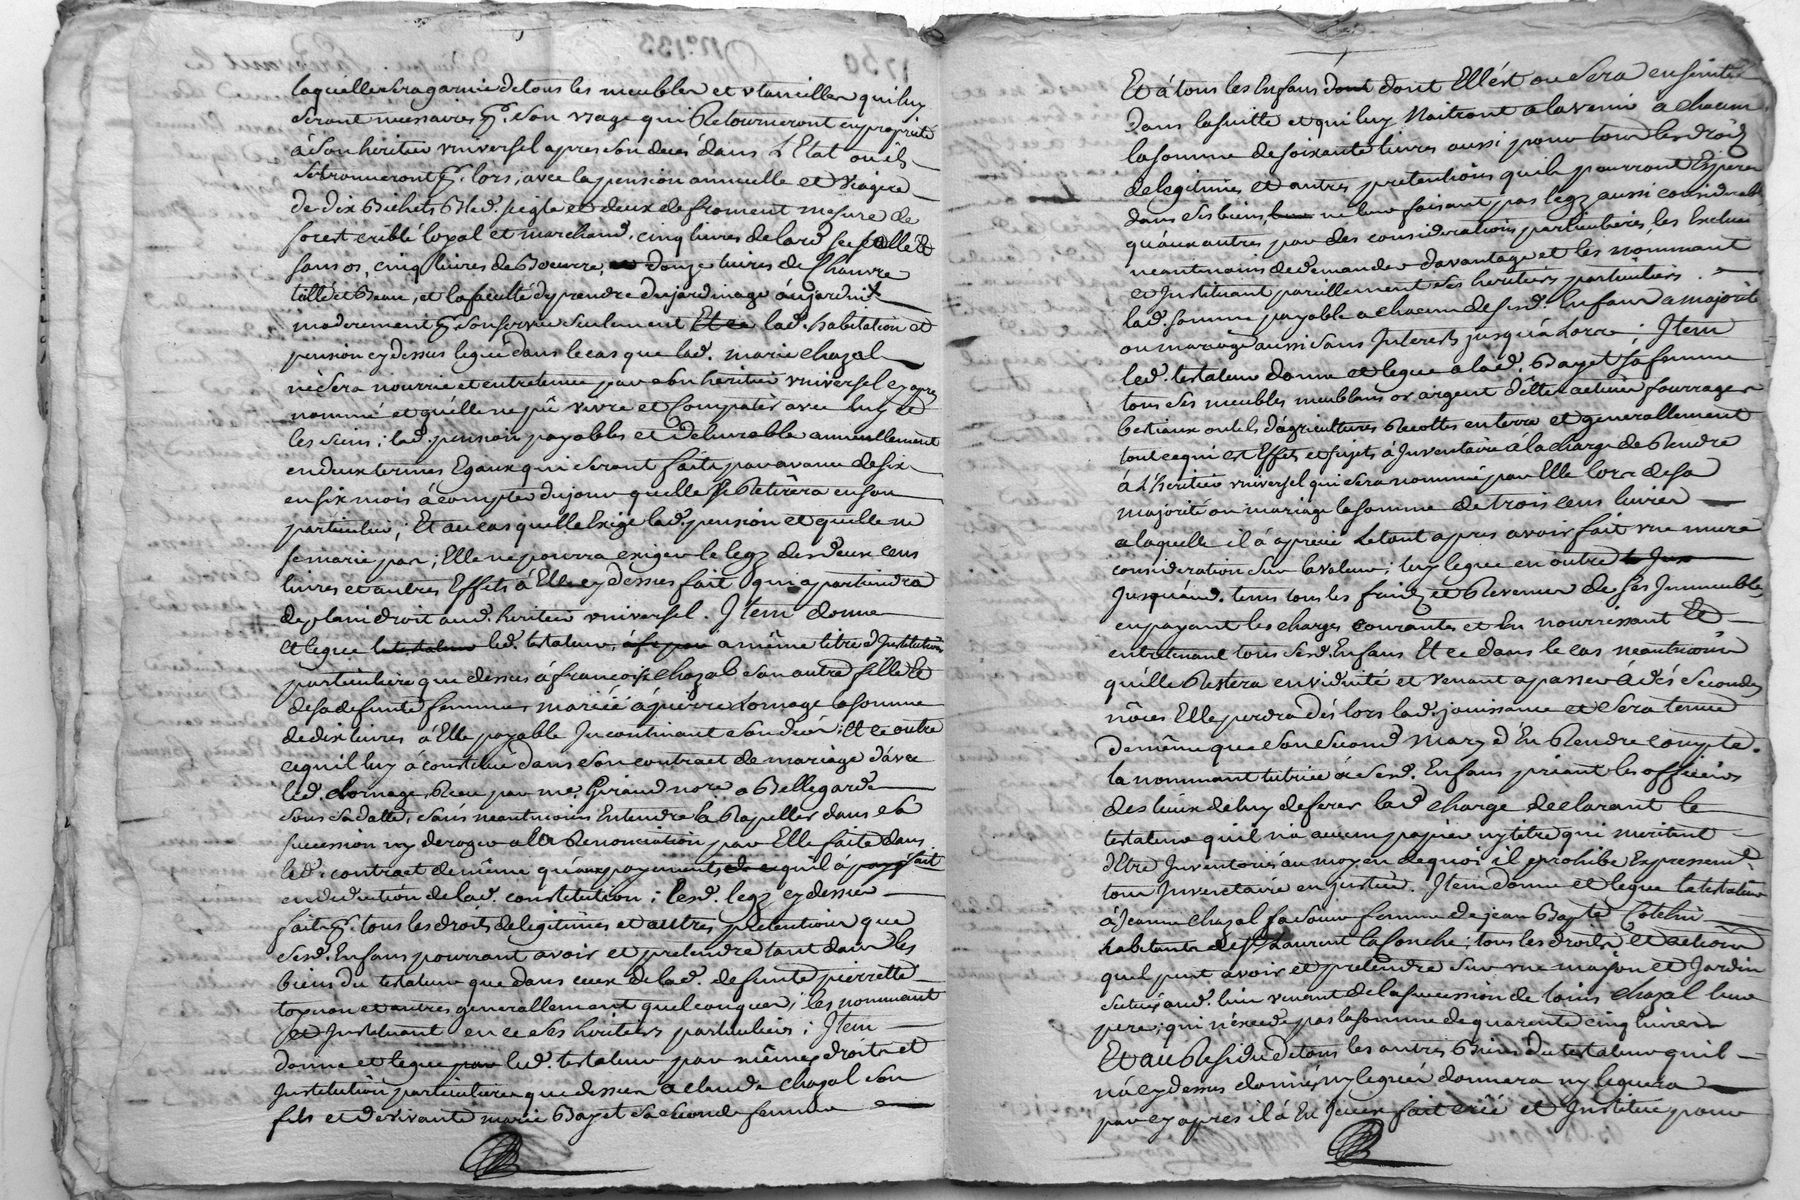 laquelle sera garnie de tous les meubles et utancilles qui luy
seront necessaires p.r son usage qui Retourneront en proprieté
à son heritier universel apres son deces dans L'Etat ou ils
se trouveront p.r lors, avec la pension annuelle et viagere
de dix Bichets Bled seigle et deux de froment mesure de
forest criblé loyal et marchand, cinq livres de lard salé &
sans os, cinq livres de Boeurre, douze livres de Chanvre
tillé et Beau, et la faculté d'y prendre du jardinage au jardin
moderement p.r son service seulement Et ce lad. habitation et
pension cy dessus legué dans le cas que lad. marie chazal
ne sera nourrie et entretenue par son heritier universel cy apres
nommé et qu'elle ne pû vivre et Compatir avec luy et
les siens; lad. pension payables et delivrable annuellement
en deux termes Egaux qui seront faits par avance de six
en six mois à compter du jour quelle se Retirera en son
particulier; Et au cas quelle Exige lad. pension et quelle ne
se marie pas; Elle ne pourra exiger le legz desd. deux cens
livres et autres Effets à Elle cy dessus fait qui apartiendra
de plain droit aud. heritier universel. Item donne
et legue le testateur led. testateur, a même titre d'Institution
particuliere que dessus à françoise chazal son autre fille &
de sa defunte femme, mariéé à pierre Lornage la somme
de dix livres à Elle payable Incontinant son deces; Et ce outre
ce qu'il luy à constitué dans son contract de mariage d'avec
led. Lornage, Reçu par me. Giraud no.re a Bellegarde
sous sa datte, sans neantmoins Entendre la Rapeller dans sa
succession ny deroger alla Renonciation par Elle faite dans
led. contract de même qu'aux payements qu'il à fait
en deduction de lad. constitution; lesd. legz cy dessus
faits p.r tous les droits de legitimes et autres pretentions que
sesd. Enfans pourront avoir et pretendre tant dans les
biens du testateur que dans ceux de lad. defunte pierrette
toynon et autres generallement quelconques; les nommant
et Instituant en ce ses heritiers particuliers; Item
donne et legue led. testateur par mêmes droits et
Institution particuliere que dessus a claude chazal son
fils et de vivante marie Bayet sa seconde femme
Et à tous les Enfans dont dont Elle est ou sera enseinte
dans la suitte et qui luy Naitront a la venir a chacun
la somme de soixante livres aussi pour tous les droits
de legitimes et autres pretentions qu'ils pourront Esperer
dans ses biens, ne leur faisant pas legz aussi considerable
qu'aux autres par des considerations particulieres, les Exclus
neantmoins de demander davantage et les nommant
et Instituant pareillement ses heritiers particuliers.
lad. somme payable a chacun de sesd. Enfans a majorité
ou mariage aussi sans Interets jusqu'à Lorce; Item
led. testateur donne et legue a lad. Bayet sa femme
tous ses meubles meublans or argent dette active fourrages
bestiaux outils d'agricultures Recoltes en terre et generallement
tout ce qui est Effets et sujets à Inventaire à la charge de Rendre
à L'heritier universel qui sera nommé par Elle lors de sa
majorité ou mariage la somme de trois cens livres
a laquelle il à aprecié Le tout apres avoir fait une mure
consideration sur la valeur; luy legue en outre
Jusqu'aud. tems tous les fruits et Revenus de ses Immeubles
en payant les charges courantes et En nourrissant &
entretenant tous sesd. Enfans Et ce dans le cas neantmoins
qu'elle Restera en viduité et venant a passer à dés Secondes
nôces Elle perdra dés lors lad. jouissance et sera tenue
de même que son second mary d'En Rendre compte.
la nommant tutrice de sesd. Enfans priant les officiers
des lieux de luy deferer lad. charge declarant le
testateur qu'il n'a aucun papier ny titre qui meritent
d'Etre Inventoriés au moyen de quoi il prohibe Expressem.t
tout Inventaire en justice. Item donne et legue le testateur
à jeanne chazal sa soeur femme de jean Bap.te Cotelin
habitants de S.t Laurent la Conche; tous les droits et actions
quel peut avoir et pretendre sur une maison et Jardin
situés aud. lieu venant de la succession de louis chazal leur
pere; qui n'excede pas la somme de quarente cinq livres
Et au Residu de tous les autres Biens du testateur qu'il
n'à cy dessus donnés ny legués donnera ny leguera
par cy apres il à En Iceux fait créé et Institué pour